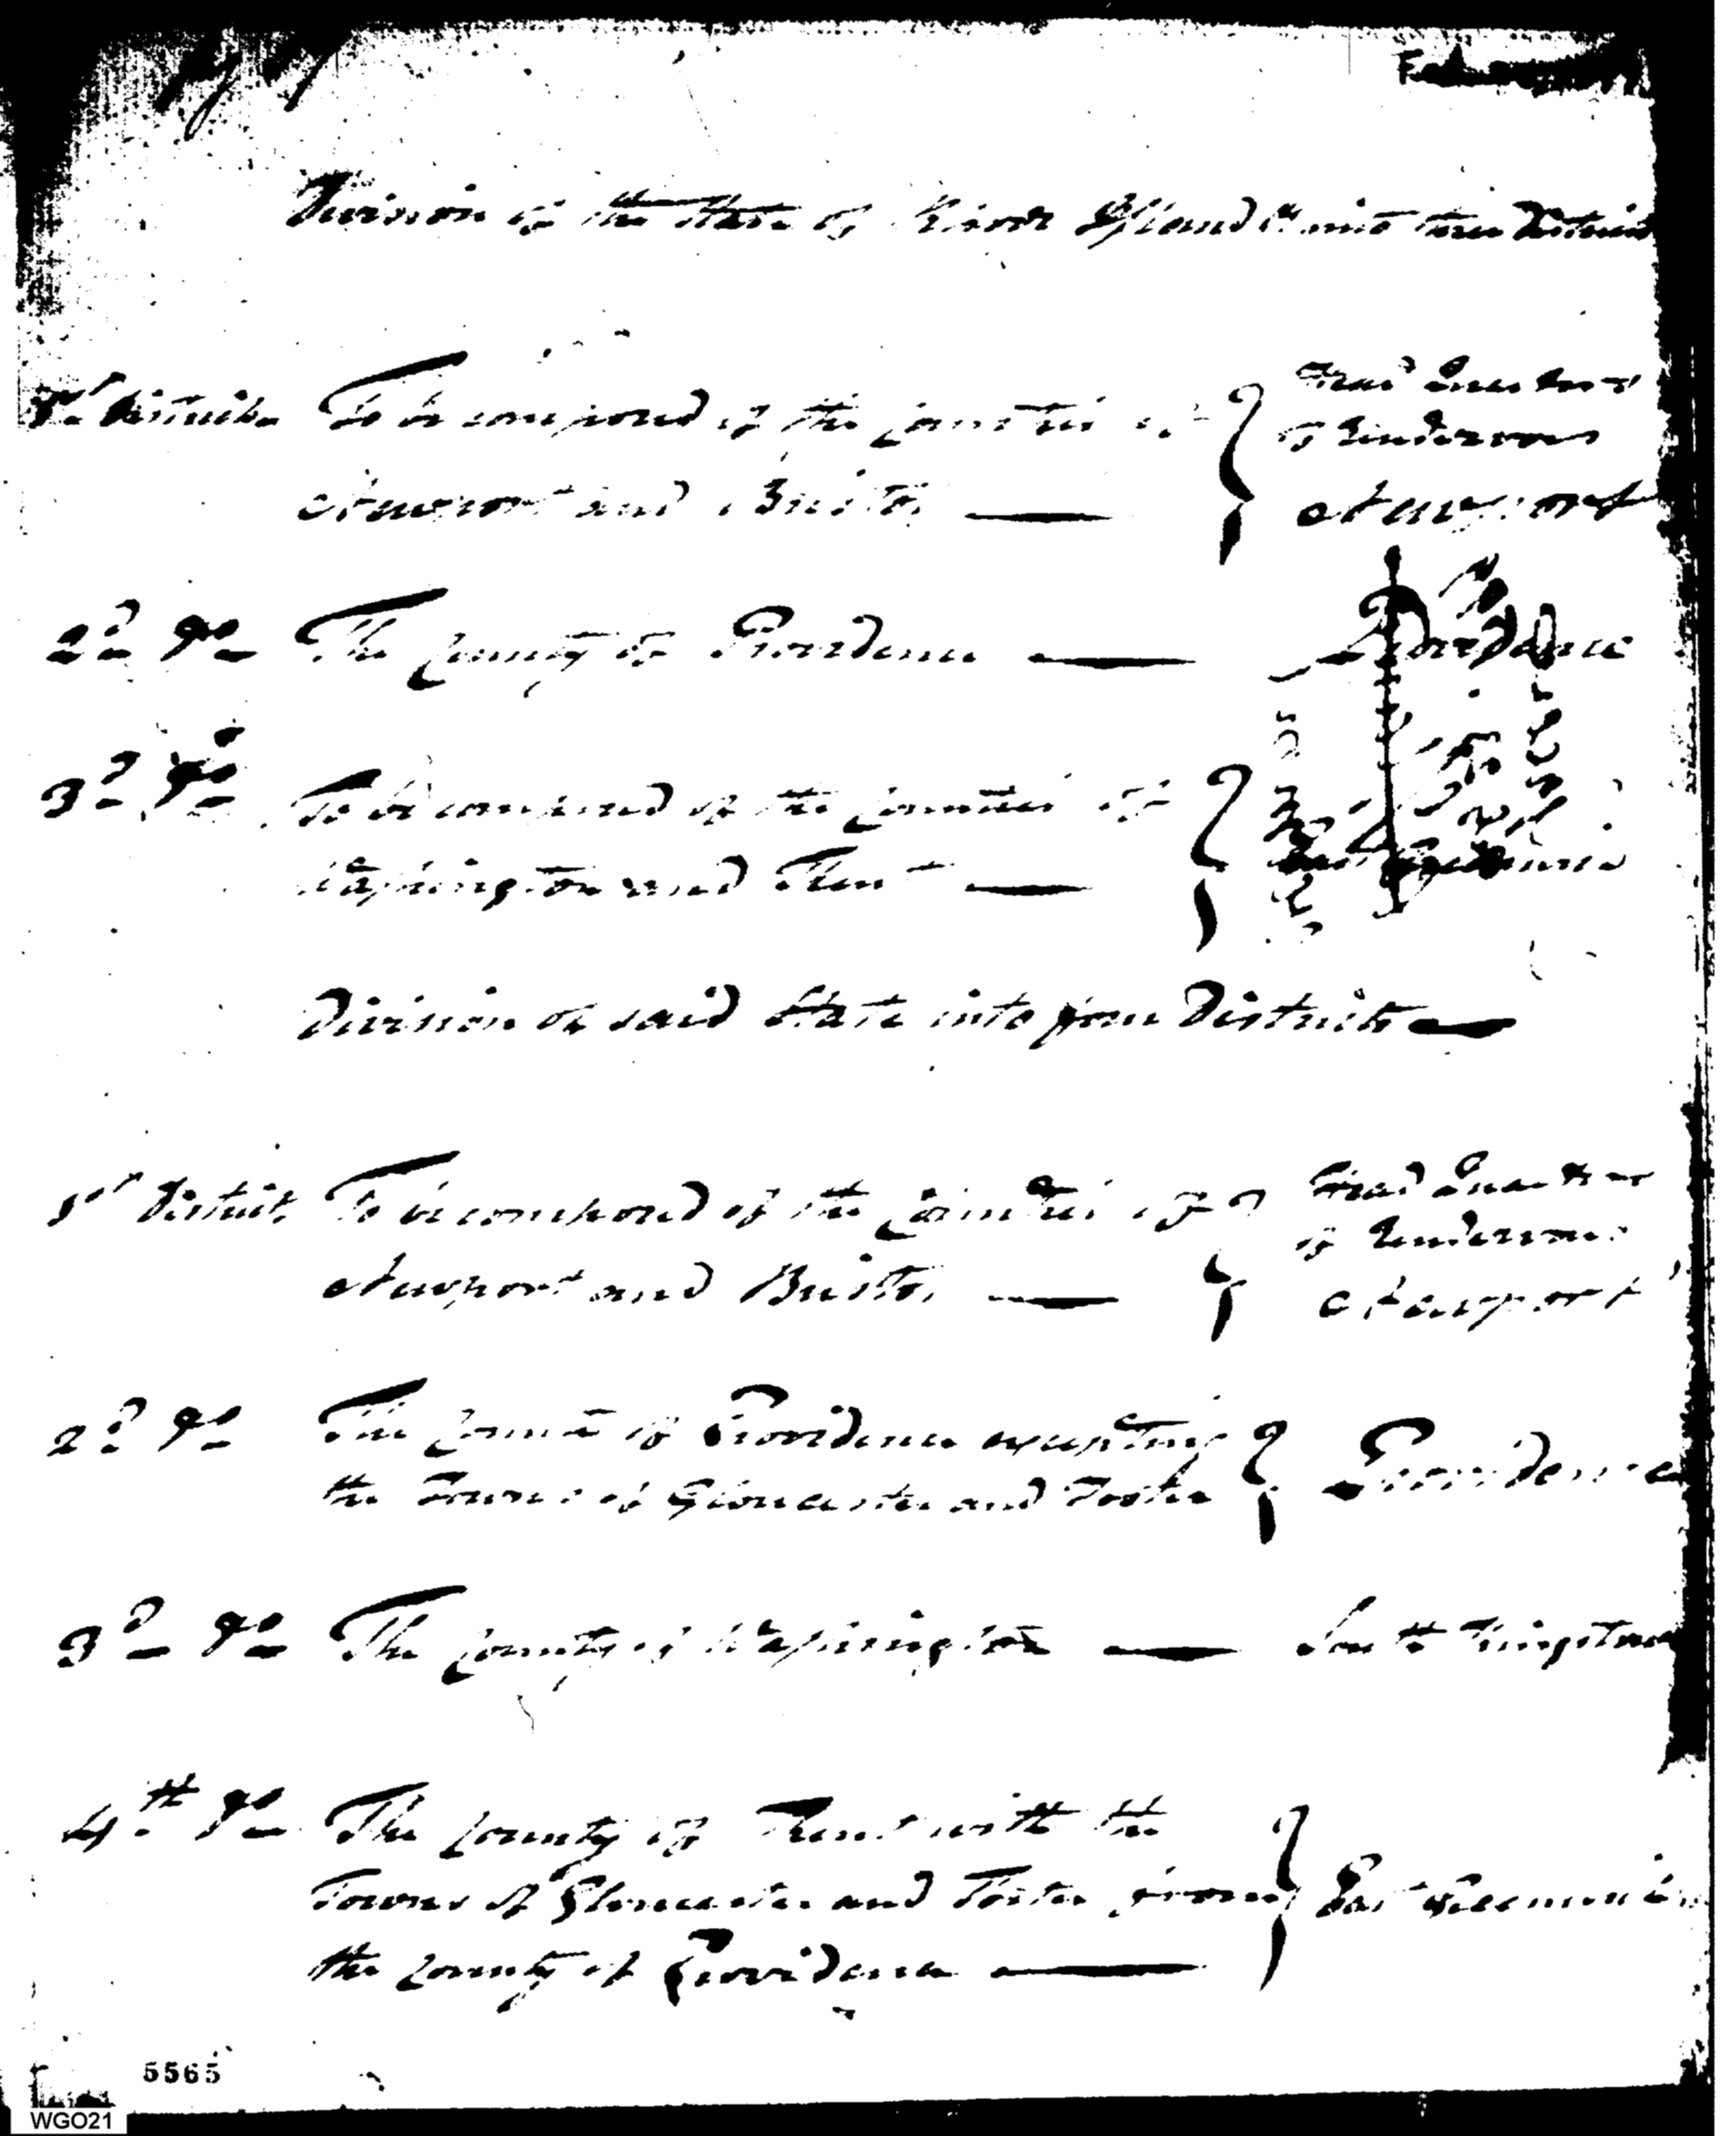 Division of the State of Rhode Island &c into three Districts
1st District To be composed of the Counties of
Newport and Bristol
Head Quarters
of Rendezvous
Newport
2d Do The County of Providence Providence
3d Do To be composed of the Counties of
Washington and Kent
East Greenwich
Division of said State into four Districts
1st District To be composed of the Counties of
Newport and Bristol
Head Quarters
of Rendezvous
Newport
2d Do The County of Providence excepting
the Towns of Gloucester and Foster
Providence
3d Do The County of Washington South Kingstown
4th Do The County of Kent with the
Towns of Gloucester and Foster from
the County of Providence
East Greenwich
5565
WGO21